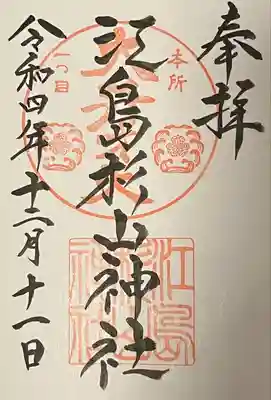 奉拝
本所
一つ目
江島杉山神社
令和四年十二月十一日
江島
神社